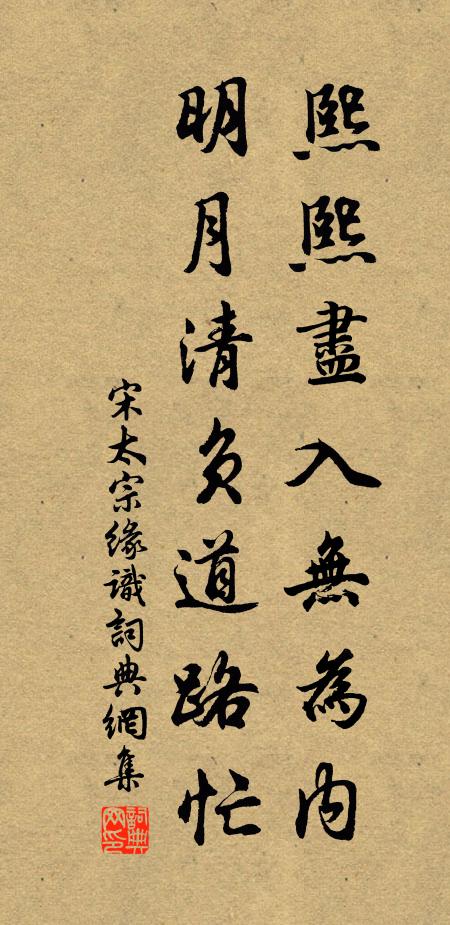 熙熙盡入無為內
明月清負道路忙
宋太宗緣識詞典網集
詞典網印